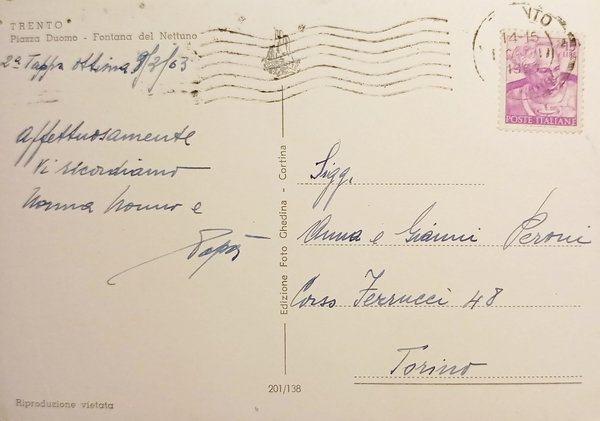 TRENTO
Piazza Duomo - Fontana del Nettuno
2ª Tappa ottima 9/2/63
Affettuosamente
vi ricordiamo
Nonna Nonno e
Papà
Edizione Foto Ghedina - Cortina
NTO
14-15
POSTE ITALIANE
Sigg.
Anna e Gianni Peroni
Corso Ferrucci 48
Torino
201/138
Riproduzione vietata